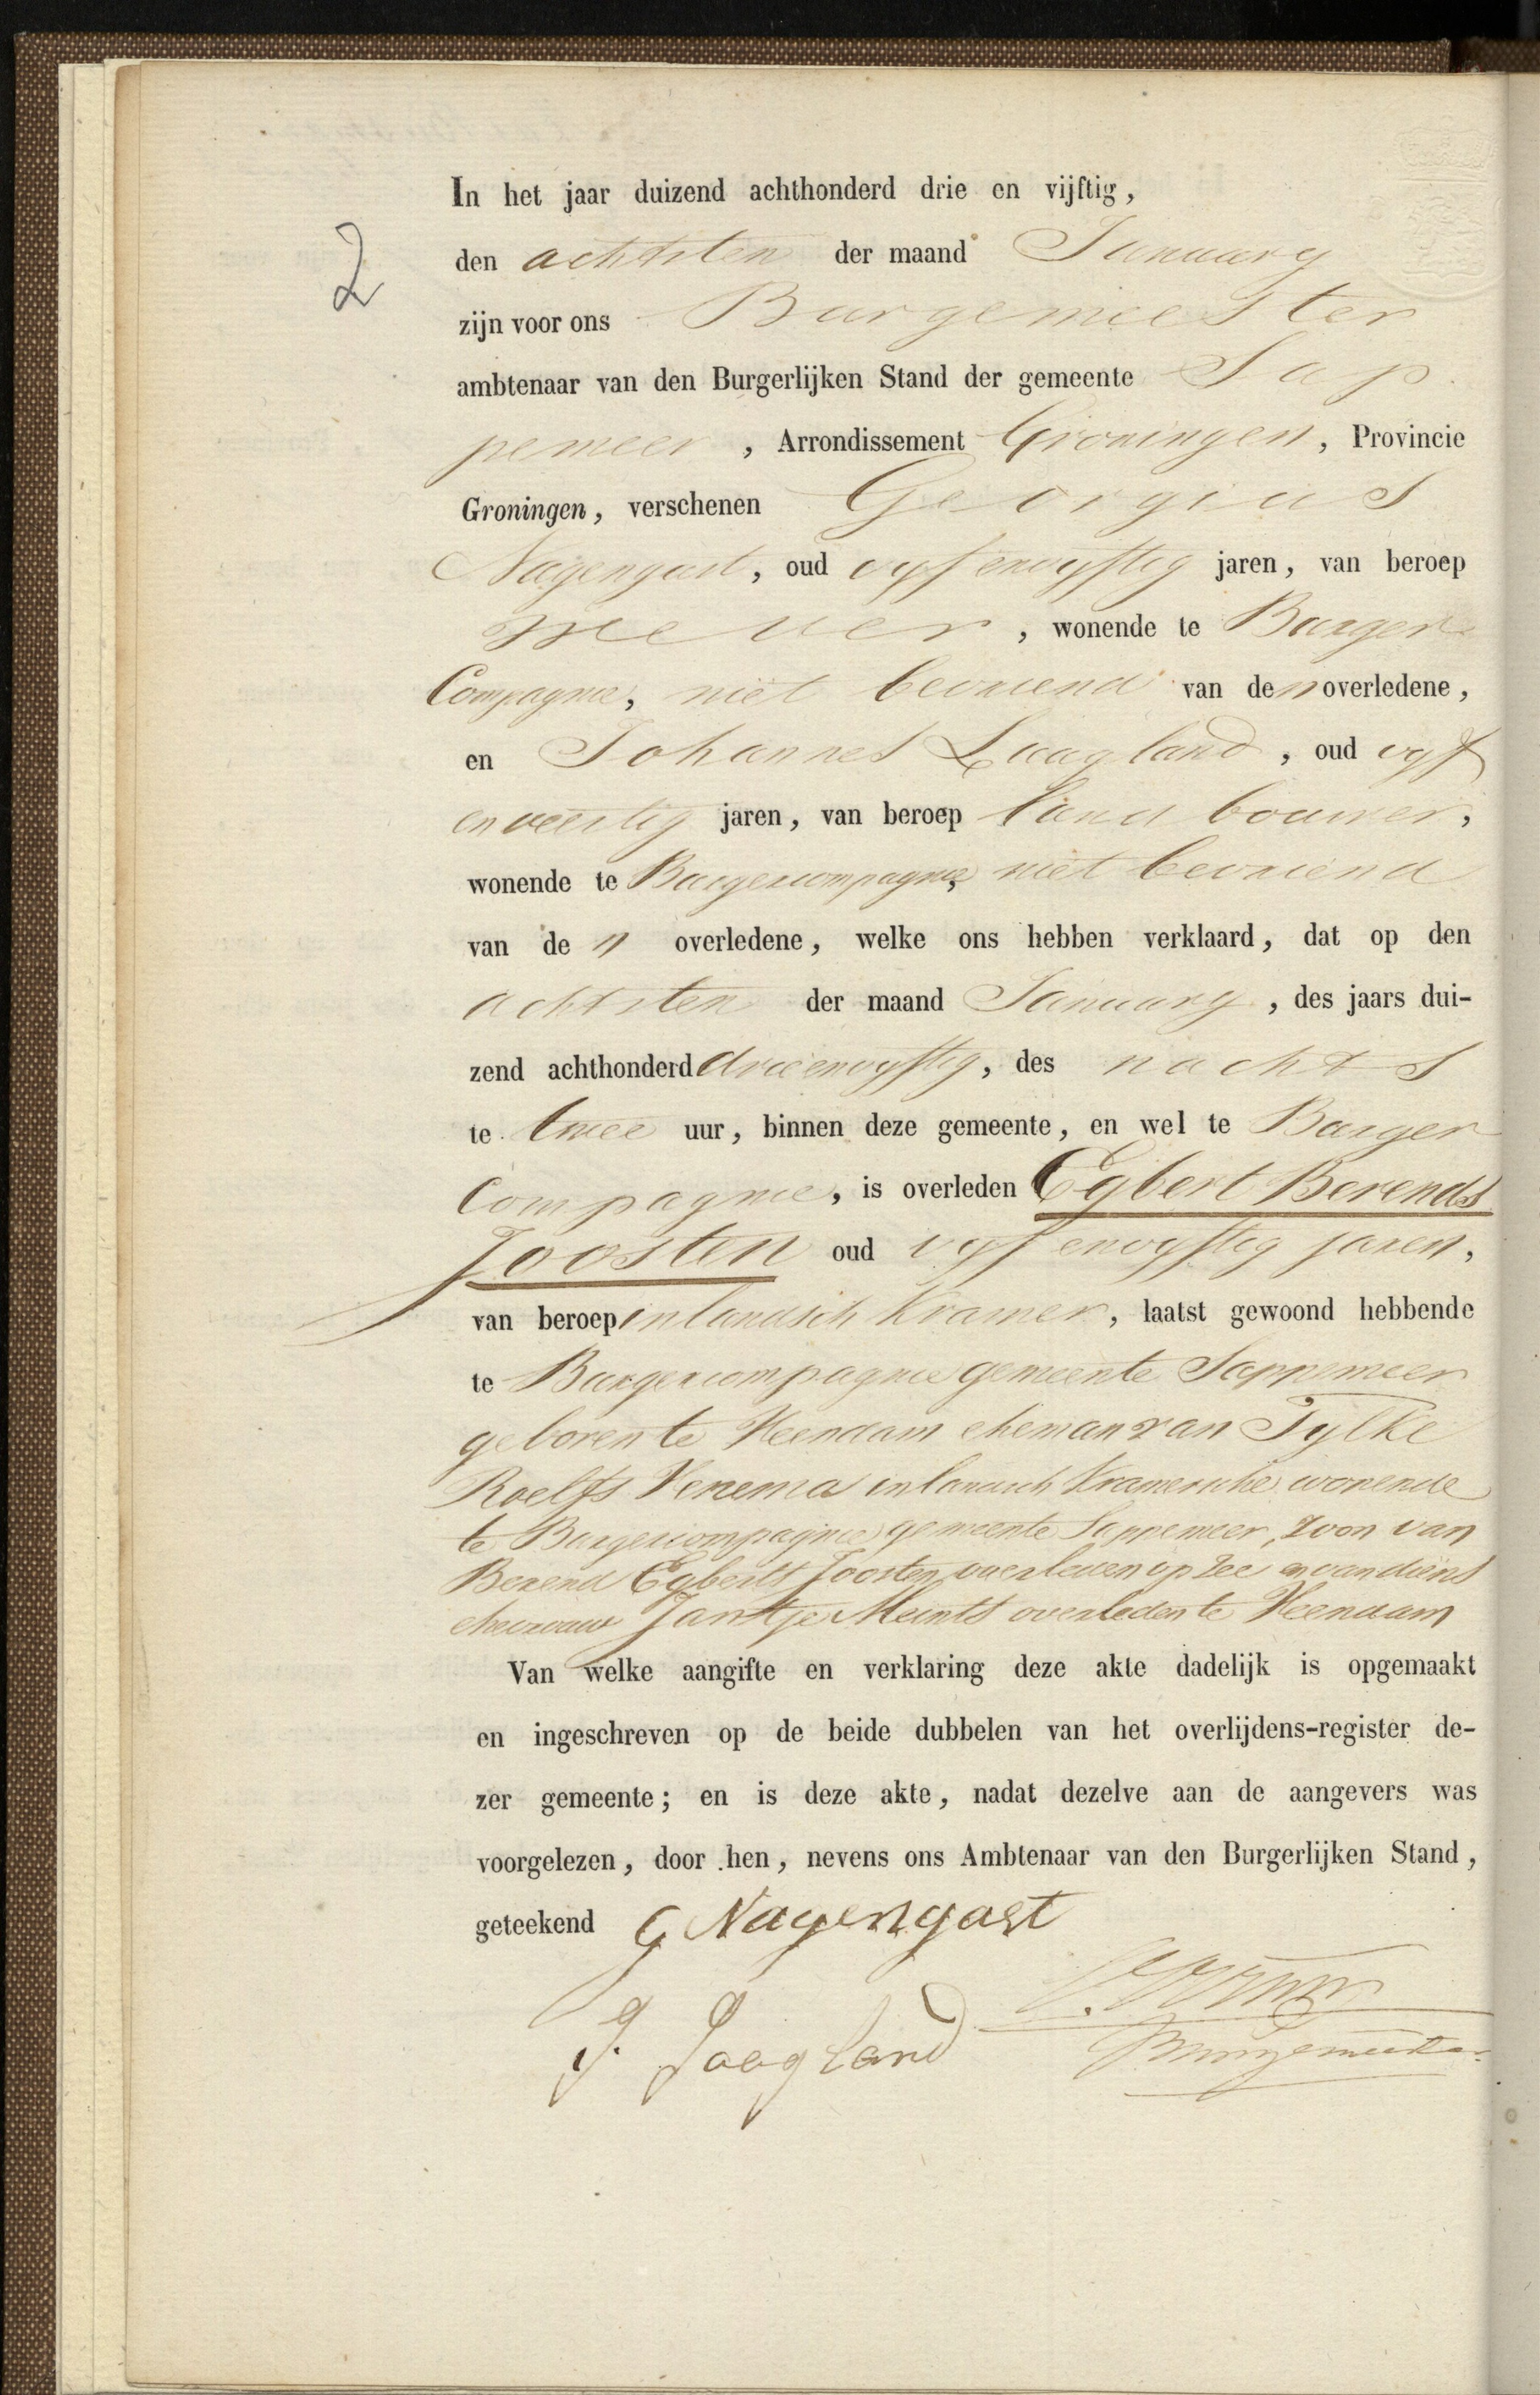 In het jaar duizend achthonderd drie en vijftig,
2
den achtsten der maand January
zijn voor ons Burgemeester
ambtenaar van den Burgerlijken Stand der gemeente Sap
pemeer, Arrondissement Groningen, Provincie
Groningen, verschenen Georgius
Nagengast, oud vyf envyftig jaren, van beroep
wever, wonende te Borger
Compagnie, niet bevriend van den overledene,
en Johannes Laagland, oud vyf
enveertig jaren, van beroep landbouwer,
wonende te Borgercompagnie, niet bevriend
van de n overledene, welke ons hebben verklaard, dat op den
achtsten der maand January, des jaars dui-
zend achthonderd drieenvyftig, des nachts
te twee uur, binnen deze gemeente, en wel te Borger
Compagnie, is overleden Egbert Berends
Joosten oud vyf envyftig jaren,
van beroep inlandsch Kramer, laatst gewoond hebbende
te Borgercompagnie gemeente Sappemeer
geboren te Veendam eheman van Tylke
Roelfs Venema inlandsch Kramersche wonende
te Borgercompagnie gemeente Sappemeer, zoon van
Berend Egberts Joosten overleden op zee en van diens
ehevrouw Jantje Meints overleden te Veendam
Van welke aangifte en verklaring deze akte dadelijk is opgemaakt
en ingeschreven op de beide dubbelen van het overlijdens-register de-
zer gemeente; en is deze akte, nadat dezelve aan de aangevers was
voorgelezen, door hen, nevens ons Ambtenaar van den Burgerlijken Stand,
geteekend G Nagengast
J. Laagland
Burgemeester